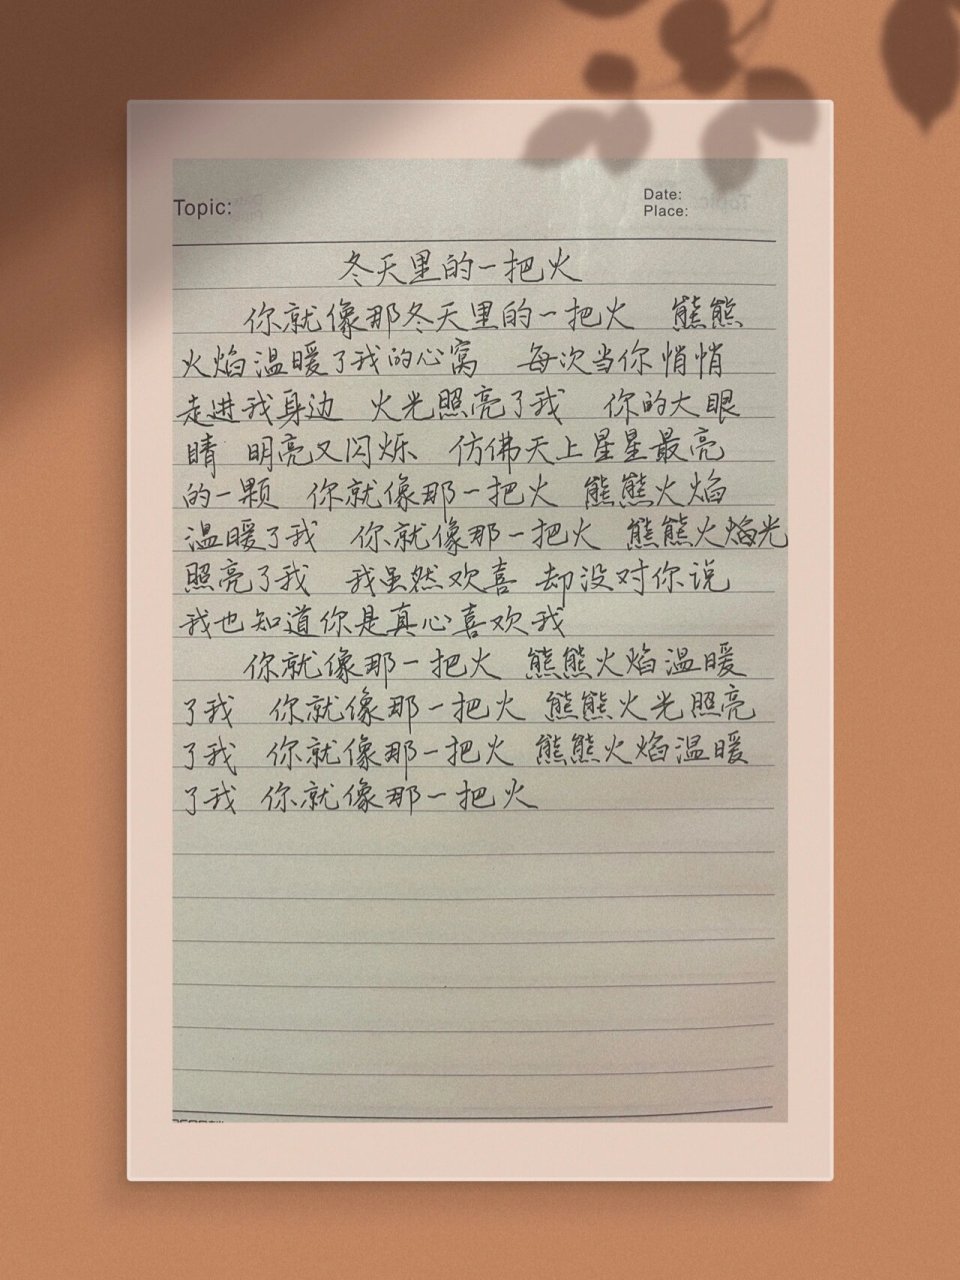 Topic:
Date:
Place:
冬天里的一把火
你就像那冬天里的一把火 熊熊
火焰温暖了我的心窝 每次当你悄悄
走进我身边 火光照亮了我 你的大眼
睛 明亮又闪烁 仿佛天上星星最亮
的一颗 你就像那一把火 熊熊火焰
温暖了我 你就像那一把火 熊熊火焰光
照亮了我 我虽然欢喜 却没对你说
我也知道你是真心喜欢我
你就像那一把火 熊熊火焰温暖
了我 你就像那一把火 熊熊火光照亮
了我 你就像那一把火 熊熊火焰温暖
了我 你就像那一把火